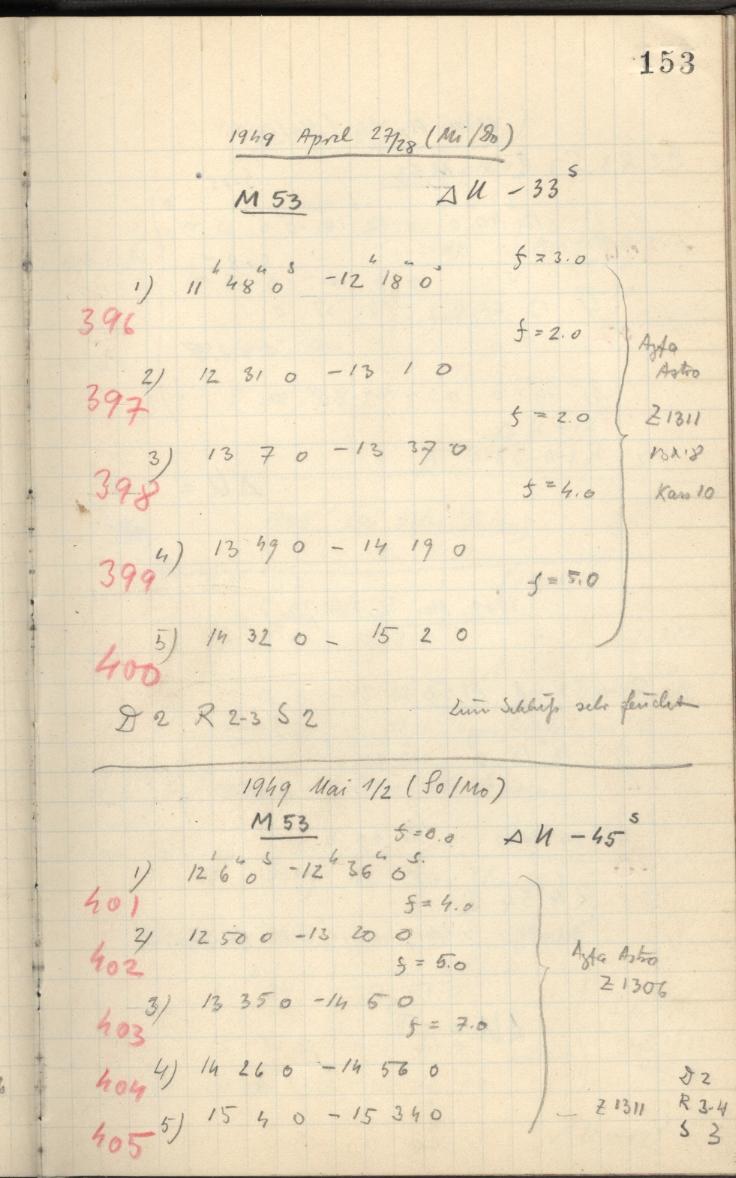 153
1949 April 27/28 (Mi/Do)
M 53 ΔU -33ˢ
f = 3.0
1) 11ʰ 48ᵐ 0ˢ -12ʰ 18ᵐ 0ˢ
396
f = 2.0
2) 12 31 0 -13 1 0
397
f = 2.0
3) 13 7 0 -13 37 0
398
f = 4.0
4) 13 49 0 - 14 19 0
399
f = 5.0
5) 14 32 0 - 15 2 0
400
Agfa
Astro
Z 1311
13x18
Kass 10
D 2 R 2-3 S 2 zum Schluß sehr feucht
1949 Mai 1/2 (So/Mo)
M 53 f = 0.0 ΔU -45ˢ
1) 12ʰ 6ᵐ 0ˢ -12ʰ 36ᵐ 0ˢ
401 f = 4.0
2) 12 50 0 -13 20 0
402 f = 5.0
3) 13 35 0 -14 5 0
403 f = 7.0
4) 14 26 0 -14 56 0
404
5) 15 4 0 -15 34 0
405
Agfa Astro
Z 1306
Z 1311
D 2
R 3-4
S 3